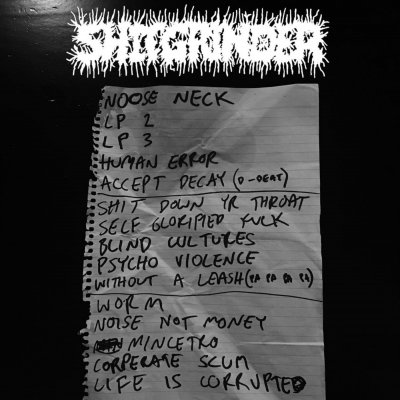 SHITGRINDER
NOOSE NECK
LP 2
LP 3
HUMAN ERROR
ACCEPT DECAY (D-BEAT)
SHIT DOWN YR THROAT
SELF GLORIFIED FUCK
BLIND CULTURES
PSYCHO VIOLENCE
WITHOUT A LEASH (PA PA PA PA)
WORM
NOISE NOT MONEY
MINCETRO
CORPERATE SCUM
LIFE IS CORRUPTED